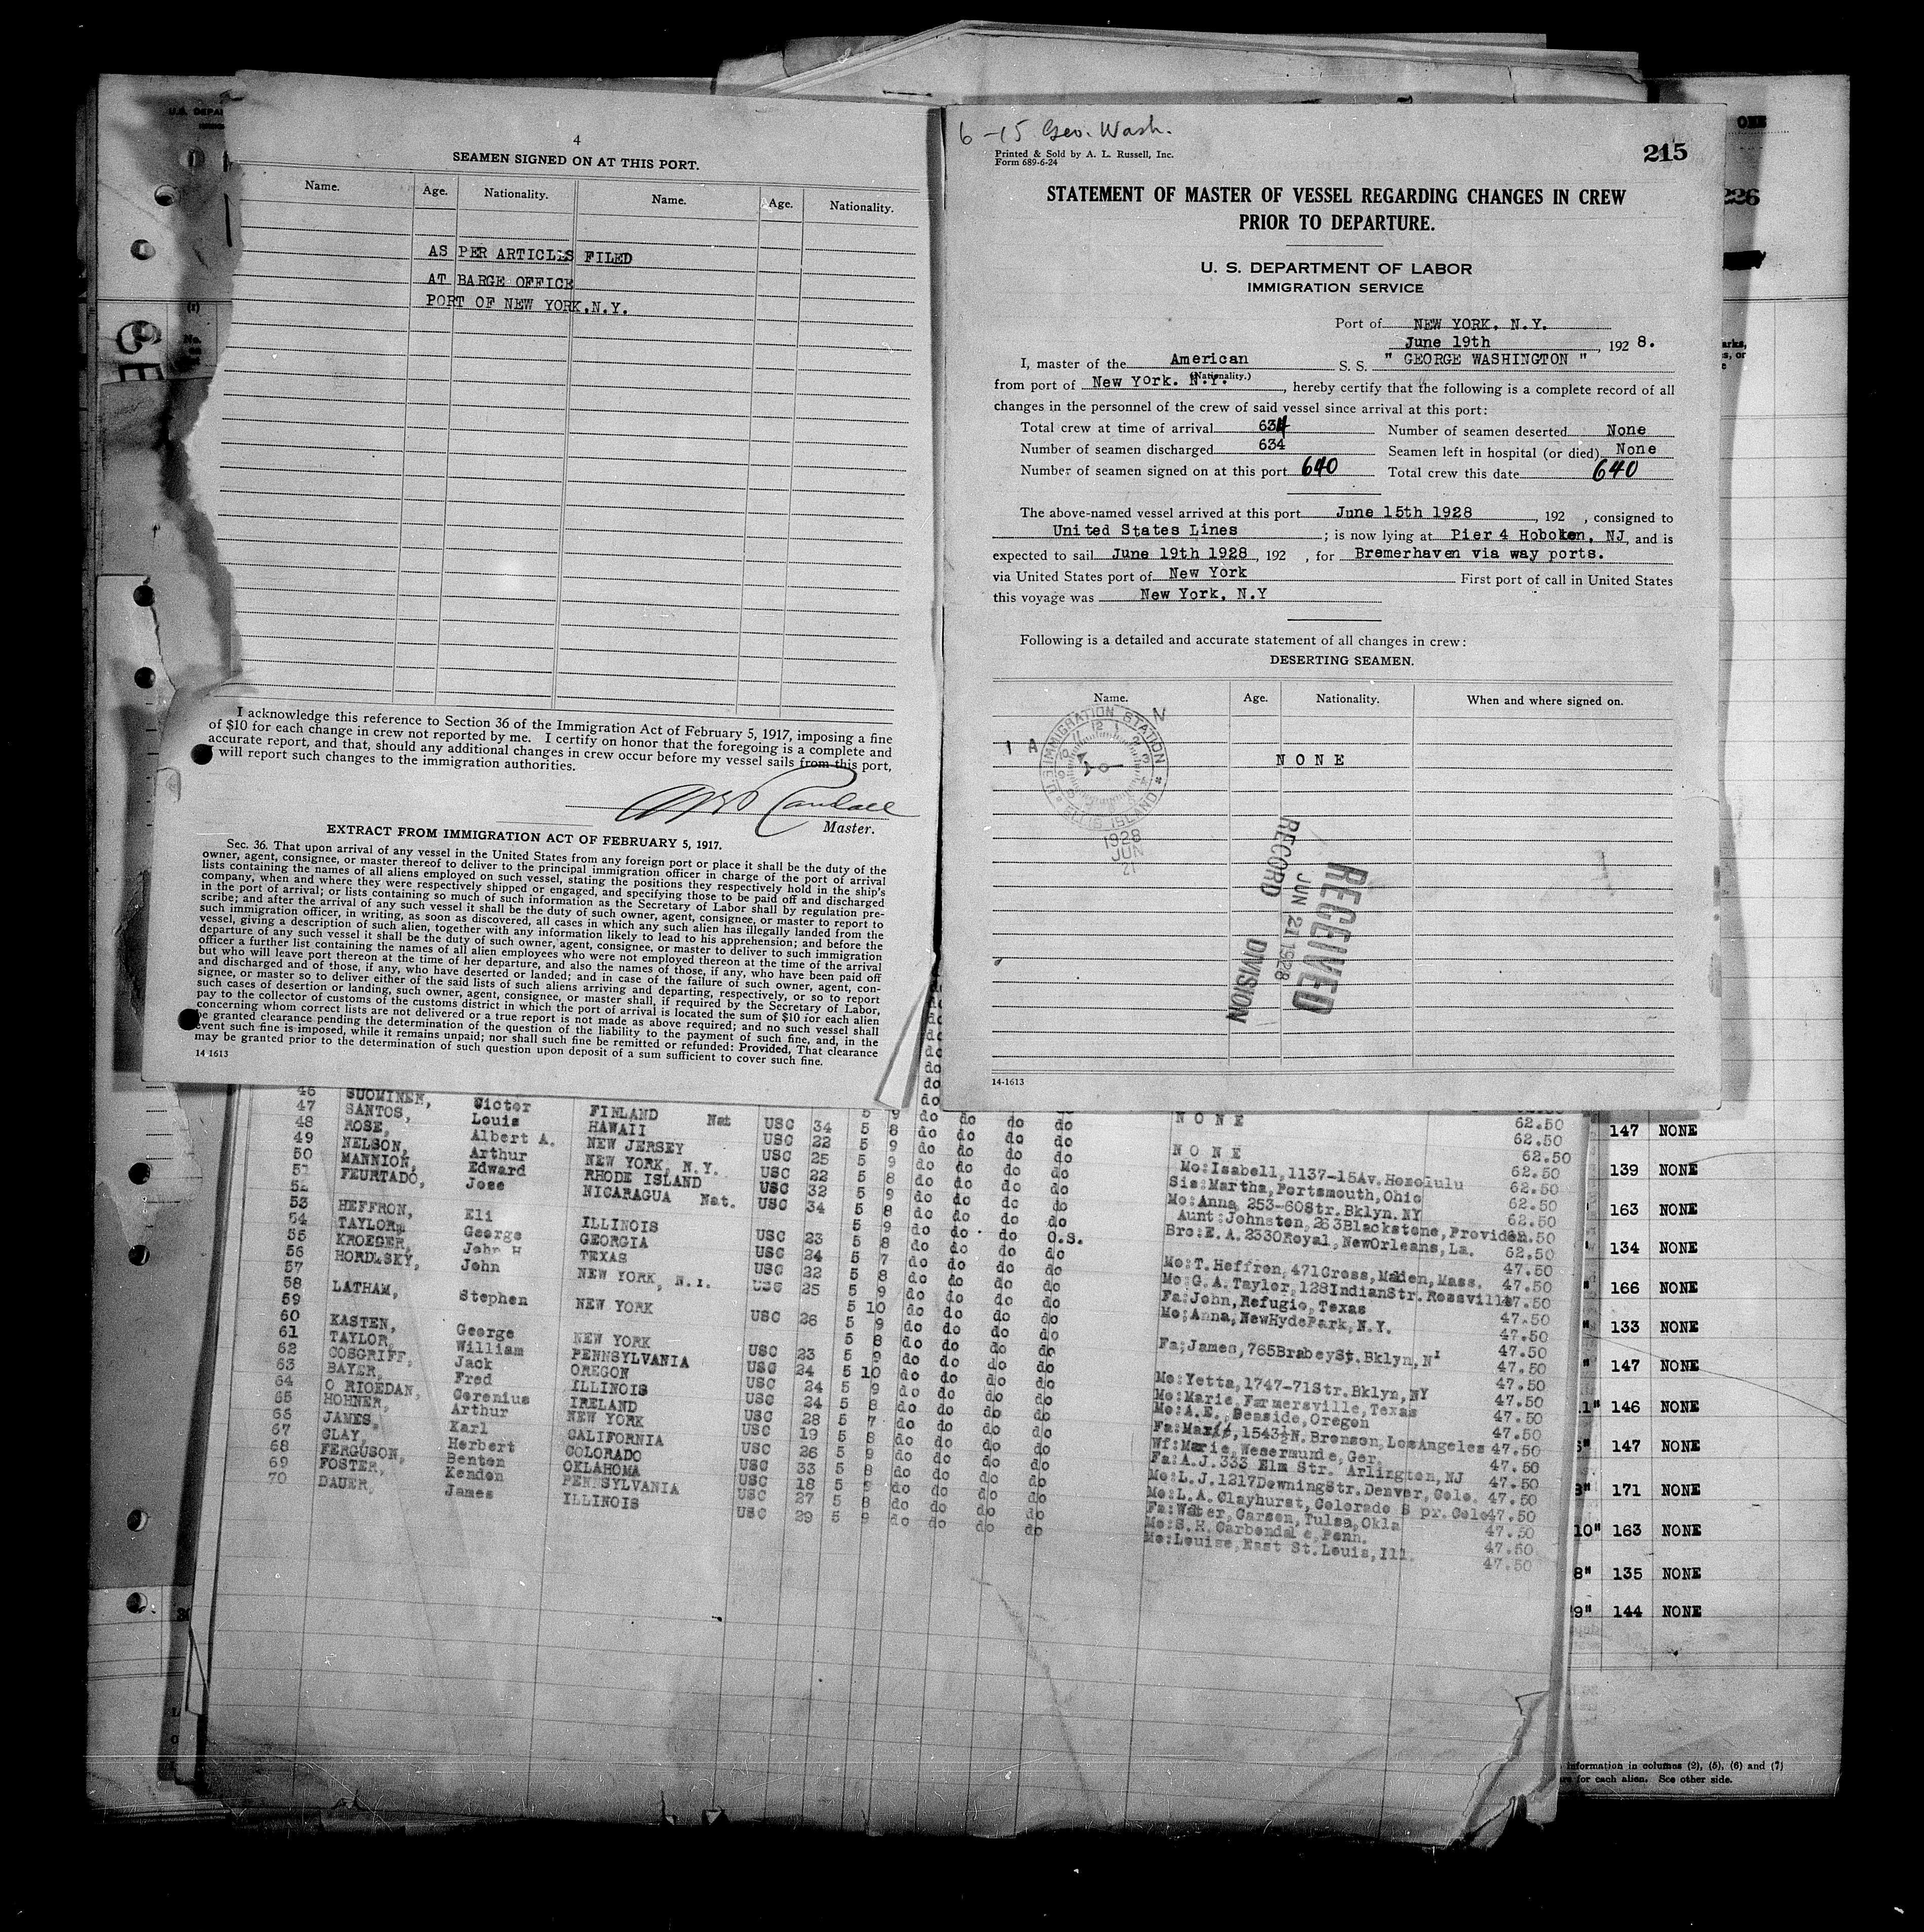 4
SEAMEN SIGNED ON AT THIS PORT.
Name. Age. Nationality. Name. Age. Nationality.
AS PER ARTICLES FILED
AT BARGE OFFICE
PORT OF NEW YORK.N.Y.
I acknowledge this reference to Section 36 of the Immigration Act of February 5, 1917, imposing a fine
of $10 for each change in crew not reported by me. I certify on honor that the foregoing is a complete and
accurate report, and that, should any additional changes in crew occur before my vessel sails from this port,
I will report such changes to the immigration authorities.
Master.
EXTRACT FROM IMMIGRATION ACT OF FEBRUARY 5, 1917.
Sec. 36. That upon arrival of any vessel in the United States from any foreign port or place it shall be the duty of the
owner, agent, consignee, or master thereof to deliver to the principal immigration officer in charge of the port of arrival
lists containing the names of all aliens employed on such vessel, stating the positions they respectively hold in the ship's
company, when and where they were respectively shipped or engaged, and specifying those to be paid off and discharged
in the port of arrival; or lists containing so much of such information as the Secretary of Labor shall by regulation pre-
scribe; and after the arrival of any such vessel it shall be the duty of such owner, agent, consignee, or master to report to
such immigration officer, in writing, as soon as discovered, all cases in which any such alien has illegally landed from the
vessel, giving a description of such alien, together with any information likely to lead to his apprehension; and before the
departure of any such vessel it shall be the duty of such owner, agent, consignee, or master to deliver to such immigration
officer a further list containing the names of all alien employees who were not employed thereon at the time of the arrival
but who will leave port thereon at the time of her departure, and also the names of those, if any, who have been paid off
and discharged and of those, if any, who have deserted or landed; and in case of the failure of such owner, agent, con-
signee, or master so to deliver either of the said lists of such aliens arriving and departing, respectively, or so to report
such cases of desertion or landing, such owner, agent, consignee, or master shall, if required by the Secretary of Labor,
pay to the collector of customs of the customs district in which the port of arrival is located the sum of $10 for each alien
concerning whom correct lists are not delivered or a true report is not made as above required; and no such vessel shall
be granted clearance pending the determination of the question of the liability to the payment of such fine, and, in the
event such fine is imposed, while it remains unpaid; nor shall such fine be remitted or refunded: Provided, That clearance
may be granted prior to the determination of such question upon deposit of a sum sufficient to cover such fine.
14-1613
6-15 Geo. Wash.
Printed & Sold by A. L. Russell, Inc.
Form 689-6-24
215
STATEMENT OF MASTER OF VESSEL REGARDING CHANGES IN CREW
PRIOR TO DEPARTURE.
U. S. DEPARTMENT OF LABOR
IMMIGRATION SERVICE
Port of NEW YORK. N.Y.
June 19th, 192 8.
I, master of the American S. S. " GEORGE WASHINGTON "
(Nationality.)
from port of New York. N.Y., hereby certify that the following is a complete record of all
changes in the personnel of the crew of said vessel since arrival at this port:
Total crew at time of arrival 634 Number of seamen deserted None
Number of seamen discharged 634 Seamen left in hospital (or died) None
Number of seamen signed on at this port 640 Total crew this date 640
The above-named vessel arrived at this port June 15th 1928, 192 , consigned to
United States Lines; is now lying at Pier 4 Hoboken, NJ, and is
expected to sail June 19th 1928, 192 , for Bremerhaven via way ports.
via United States port of New York First port of call in United States
this voyage was New York, N.Y
Following is a detailed and accurate statement of all changes in crew:
DESERTING SEAMEN.
Name. Age. Nationality. When and where signed on.
NONE
U.S. IMMIGRATION STATION
ELLIS ISLAND
1928
JUN
21
RECEIVED
JUN 21 1928
RECORD DIVISION
14-1613
46 SUOMINEN, Victor FINLAND Nat USC 34 5 8 do do do do NONE 62.50
47 SANTOS, Louis HAWAII USC 22 5 9 do do do do NONE 62.50
48 ROSE, Albert A. NEW JERSEY USC 25 5 9 do do do do Mo:Isabell,1137-15Av.Honolulu 62.50
49 NELSON, Arthur NEW YORK, N.Y. USC 22 5 8 do do do do Sis:Martha,Portsmouth,Ohio 62.50
50 MANNION, Edward RHODE ISLAND USC 32 5 9 do do do do Mo:Anna 253-60Str.Bklyn.NY 62.50
51 FEURTADO, Jose NICARAGUA Nat. USC 34 5 8 do do do do Aunt:Johnston,263Blackstone,Providen 62.50
52
53 HEFFRON, Eli ILLINOIS USC 23 5 8 do do do do Mo:T.Heffron,471Cross,Malden,Mass. 47.50
54 TAYLOR, George GEORGIA USC 24 5 7 do do do do Mo:G.A.Taylor,128IndianStr.Rossville 47.50
55 KROEGER, John H TEXAS USC 22 5 8 do do do do Fa:John,Refugio,Texas 47.50
56 HORDLSKY, John NEW YORK, N.Y. USC 25 5 9 do do do do Mo;Anna,NewHydePark,N.Y. 47.50
57
58 LATHAM, Stephen NEW YORK USC 26 5 9 do do do do Fa;James,765BrabeySt.Bklyn,N 47.50
59
60 KASTEN, George NEW YORK USC 23 5 9 do do do do Mo:Yetta,1747-71Str.Bklyn,NY 47.50
61 TAYLOR, William PENNSYLVANIA USC 24 5 10 do do do do Mo:Marie,Farmersville,Texas 47.50
62 COSGRIFF, Jack OREGON USC 24 5 9 do do do do Mo:A.E.,Seaside,Oregon 47.50
63 BAYER, Fred ILLINOIS USC 24 5 8 do do do do Fa:Max,1543½N.Bronson,LosAngeles 47.50
64 O RIOEDAN, Gerenius IRELAND USC 28 5 7 do do do do Wf:Marie,Wesermunde,Ger. 47.50
65 HOHNER, Arthur NEW YORK USC 19 5 8 do do do do Fa:A.J.333 Elm Str. Arlington,NJ 47.50
66 JAMES, Karl CALIFORNIA USC 26 5 9 do do do do Mo:L.J.1217DowningStr.Denver,Colo. 47.50
67 CLAY, Herbert COLORADO USC 33 5 8 do do do do Mo:L.A.Clayhurst,Colorado S pr.Colo 47.50
68 FERGUSON, Benton OKLAHOMA USC 18 5 9 do do do do Fa:Walter,Carsen,Tulsa,Okla 47.50
69 FOSTER, Kendon PENNSYLVANIA USC 27 5 8 do do do do Mo:S.H.Carbondale,Penn. 47.50
70 DAUER, James ILLINOIS USC 29 5 9 do do do do Mo:Louise,East St.Louis,Ill. 47.50
147 NONE
139 NONE
163 NONE
134 NONE
166 NONE
133 NONE
147 NONE
146 NONE
147 NONE
171 NONE
10" 163 NONE
8" 135 NONE
9" 144 NONE
information in columns (2), (5), (6) and (7)
for each alien. See other side.